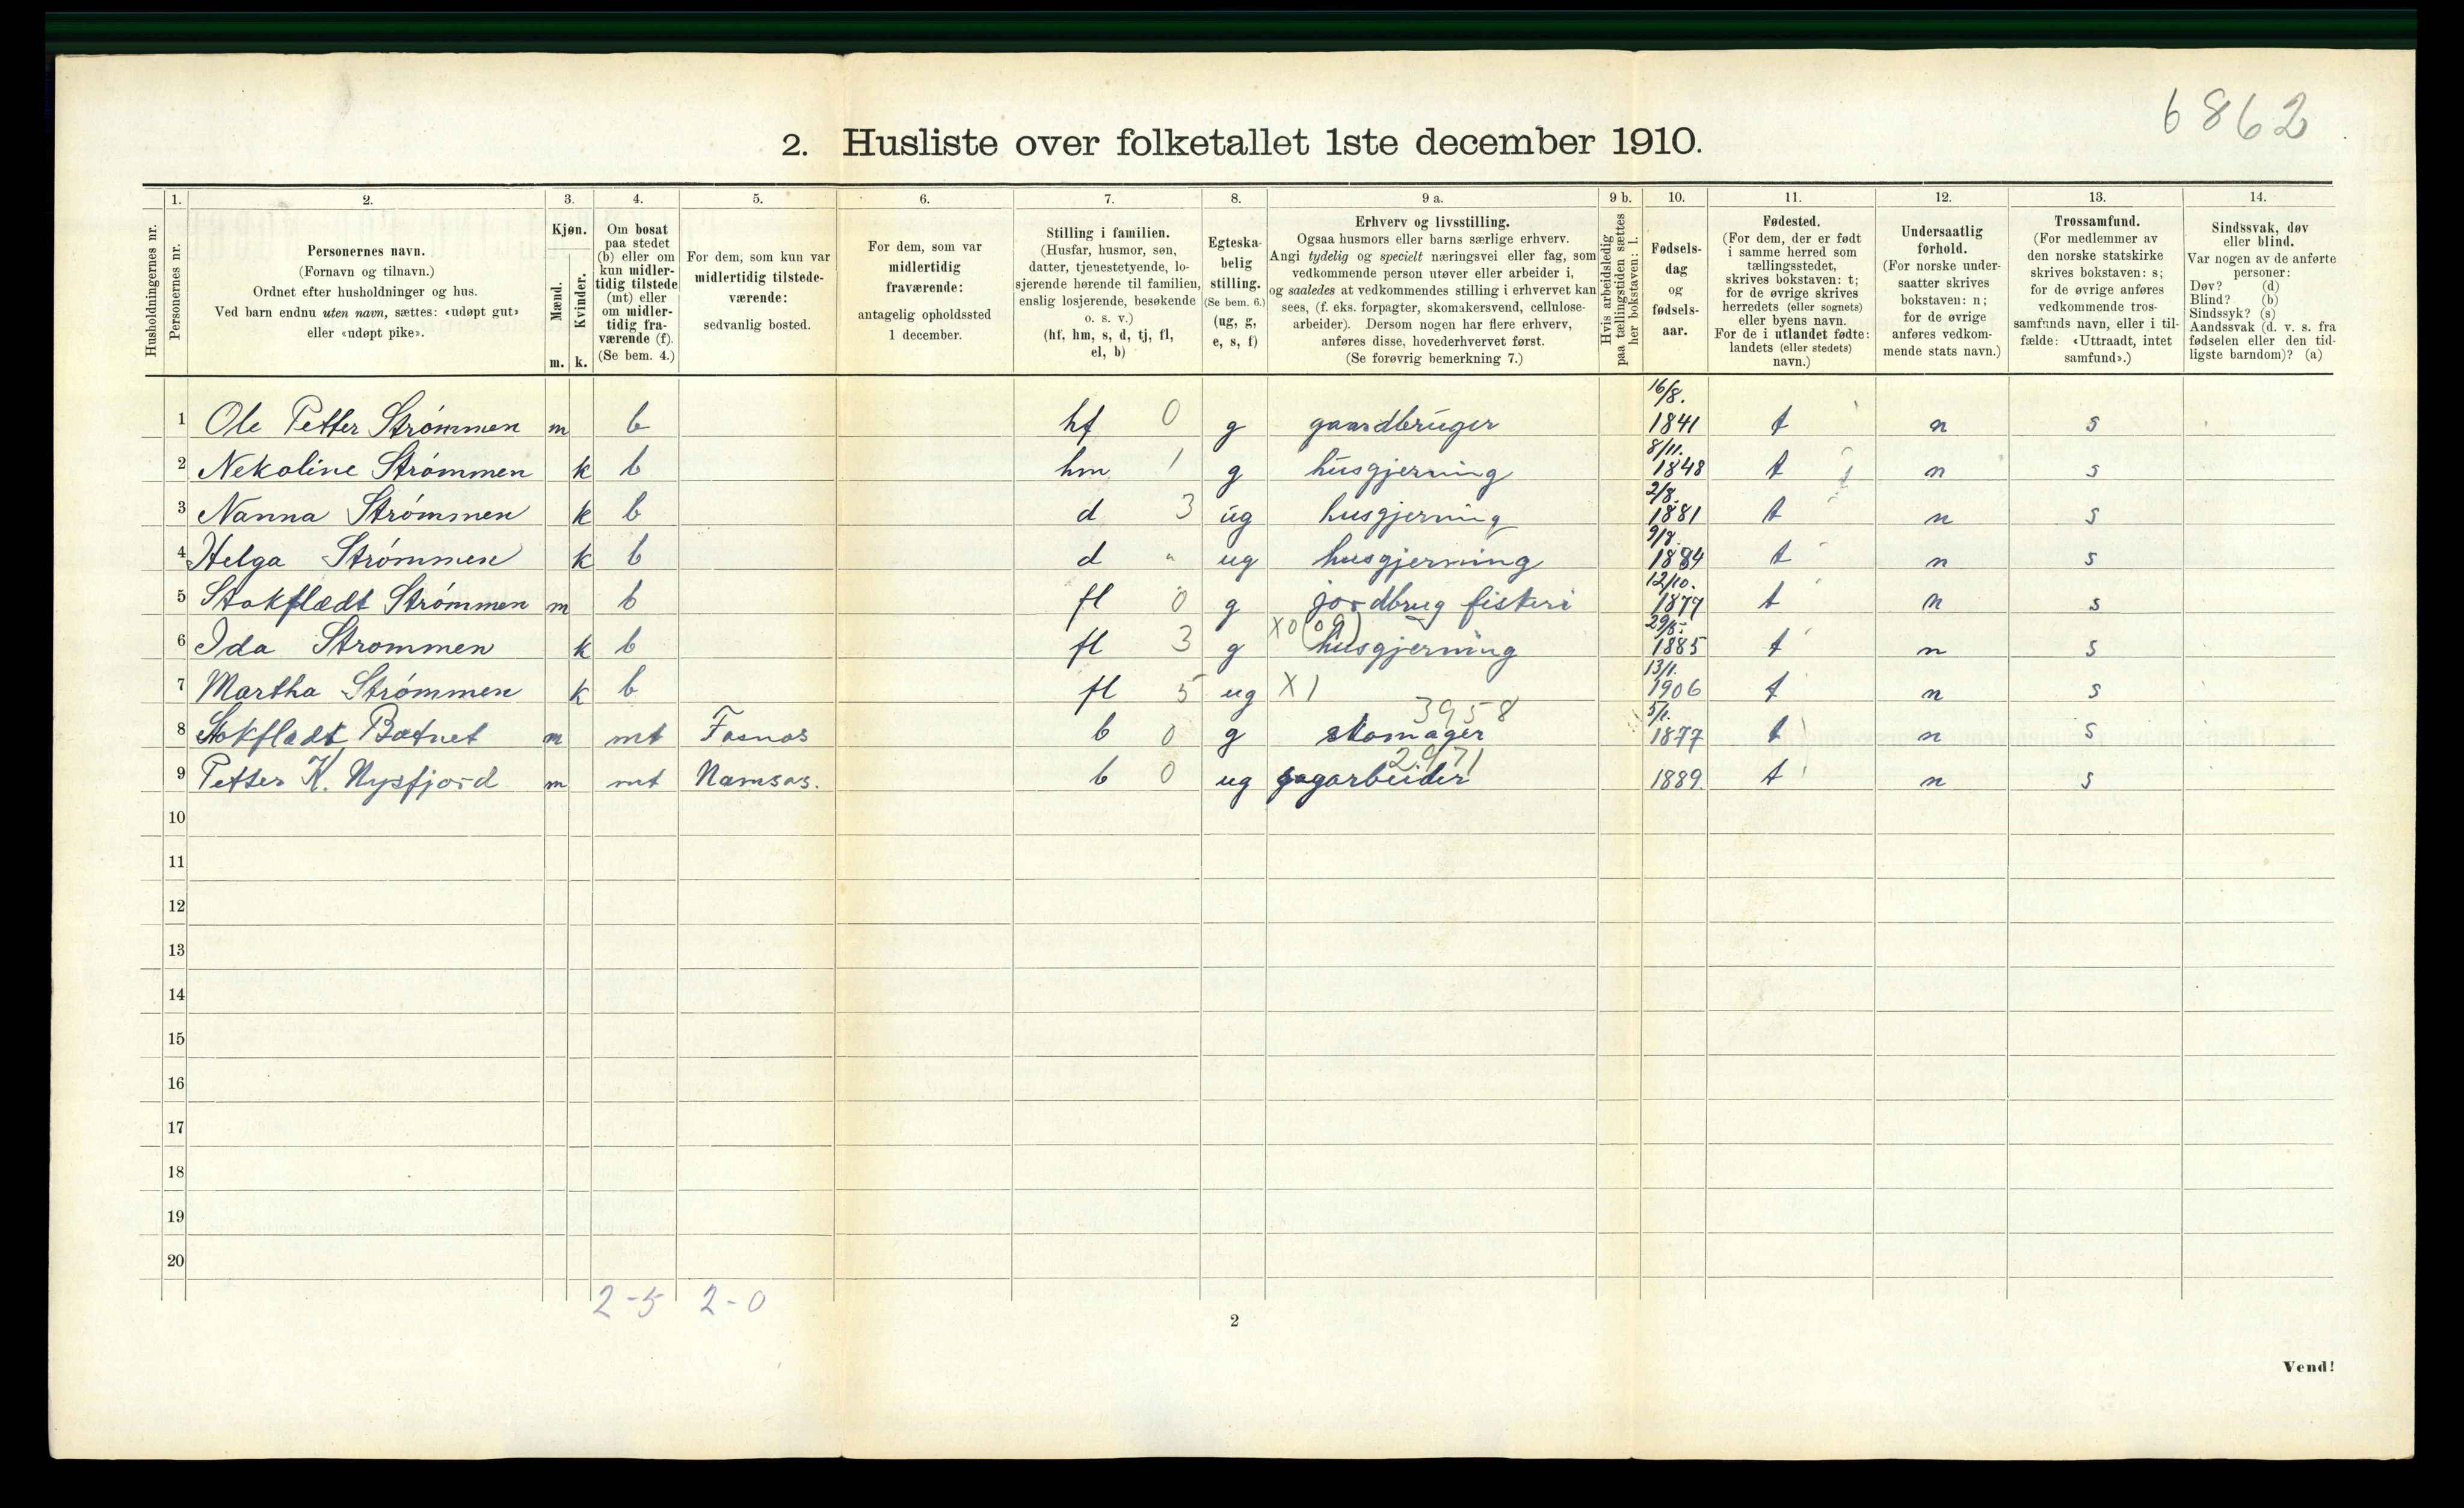 6862
2. Husliste over folketallet 1ste december 1910.
1. 2. 3. 4. 5. 6. 7. 8. 9 a. 9 b. 10. 11. 12. 13. 14.
Husholdningernes nr.
Personernes nr.
Personernes navn.
(Fornavn og tilnavn.)
Ordnet efter husholdninger og hus.
Ved barn endnu uten navn, sættes: «udøpt gut»
eller «udøpt pike».
Kjøn.
Mænd.
Kvinder.
m. k.
Om bosat
paa stedet
(b) eller om
kun midler-
tidig tilstede
(mt) eller
om midler-
tidig fra-
værende (f).
(Se bem. 4.)
For dem, som kun var
midlertidig tilstede-
værende:
sedvanlig bosted.
For dem, som var
midlertidig
fraværende:
antagelig opholdssted
1 december.
Stilling i familien.
(Husfar, husmor, søn,
datter, tjenestetyende, lo-
sjerende hørende til familien,
enslig losjerende, besøkende
o. s. v.)
(hf, hm, s, d, tj, fl,
el, b)
Egteska-
belig
stilling.
(Se bem. 6.)
(ug, g,
e, s, f)
Erhverv og livsstilling.
Ogsaa husmors eller barns særlige erhverv.
Angi tydelig og specielt næringsvei eller fag, som
vedkommende person utøver eller arbeider i,
og saaledes at vedkommendes stilling i erhvervet kan
sees, (f. eks. forpagter, skomakersvend, cellulose-
arbeider). Dersom nogen har flere erhverv,
anføres disse, hovederhvervet først.
(Se forøvrig bemerkning 7.)
Hvis arbeidsledig
paa tællingstiden sættes
her bokstaven: l.
Fødsels-
dag
og
fødsels-
aar.
Fødested.
(For dem, der er født
i samme herred som
tællingsstedet,
skrives bokstaven: t;
for de øvrige skrives
herredets (eller sognets)
eller byens navn.
For de i utlandet fødte:
landets (eller stedets)
navn.)
Undersaatlig
forhold.
(For norske under-
saatter skrives
bokstaven: n;
for de øvrige
anføres vedkom-
mende stats navn.)
Trossamfund.
(For medlemmer av
den norske statskirke
skrives bokstaven: s;
for de øvrige anføres
vedkommende tros-
samfunds navn, eller i til-
fælde: «Uttraadt, intet
samfund».)
Sindssvak, døv
eller blind.
Var nogen av de anførte
personer:
Døv? (d)
Blind? (b)
Sindssyk? (s)
Aandssvak (d. v. s. fra
fødselen eller den tid-
ligste barndom)? (a)
16/8.
1 Ole Petter Strømmen m b hf 0 g gaardbruger 1841 t n s
8/11.
2 Nekoline Strømmen k b hm 1 g husgjerning 1848 t n s
2/8.
3 Nanna Strømmen k b d 3 ug husgjerning 1881 t n s
9/8.
4 Helga Strømmen k b d " ug husgjerning 1884 t n s
12/10.
5 Stokflædt Strømmen m b fl 0 g jordbrug fiskeri 1877 t n s
X0(09) 29/5.
6 Ida Strommen k b fl 3 g husgjerning 1885 t n s
13/1.
7 Martha Strømmen k b fl 5 ug X1 1906 t n s
3958 5/1.
8 Stokflædt Bætnet m mt Fosnas b 0 g skomager 1877 t n s
2971
9 Petter K. Nysfjord m mt Namsos. b 0 ug sagarbeider 1889. t n s
10
11
12
13
14
15
16
17
18
19
20
2-5 2-0
2
Vend!